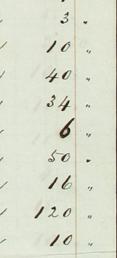 3 "
/ 10 "
/ 40 "
/ 34 "
/ 6 "
/ 50 "
/ 16 "
/ 120 "
/ 10 "